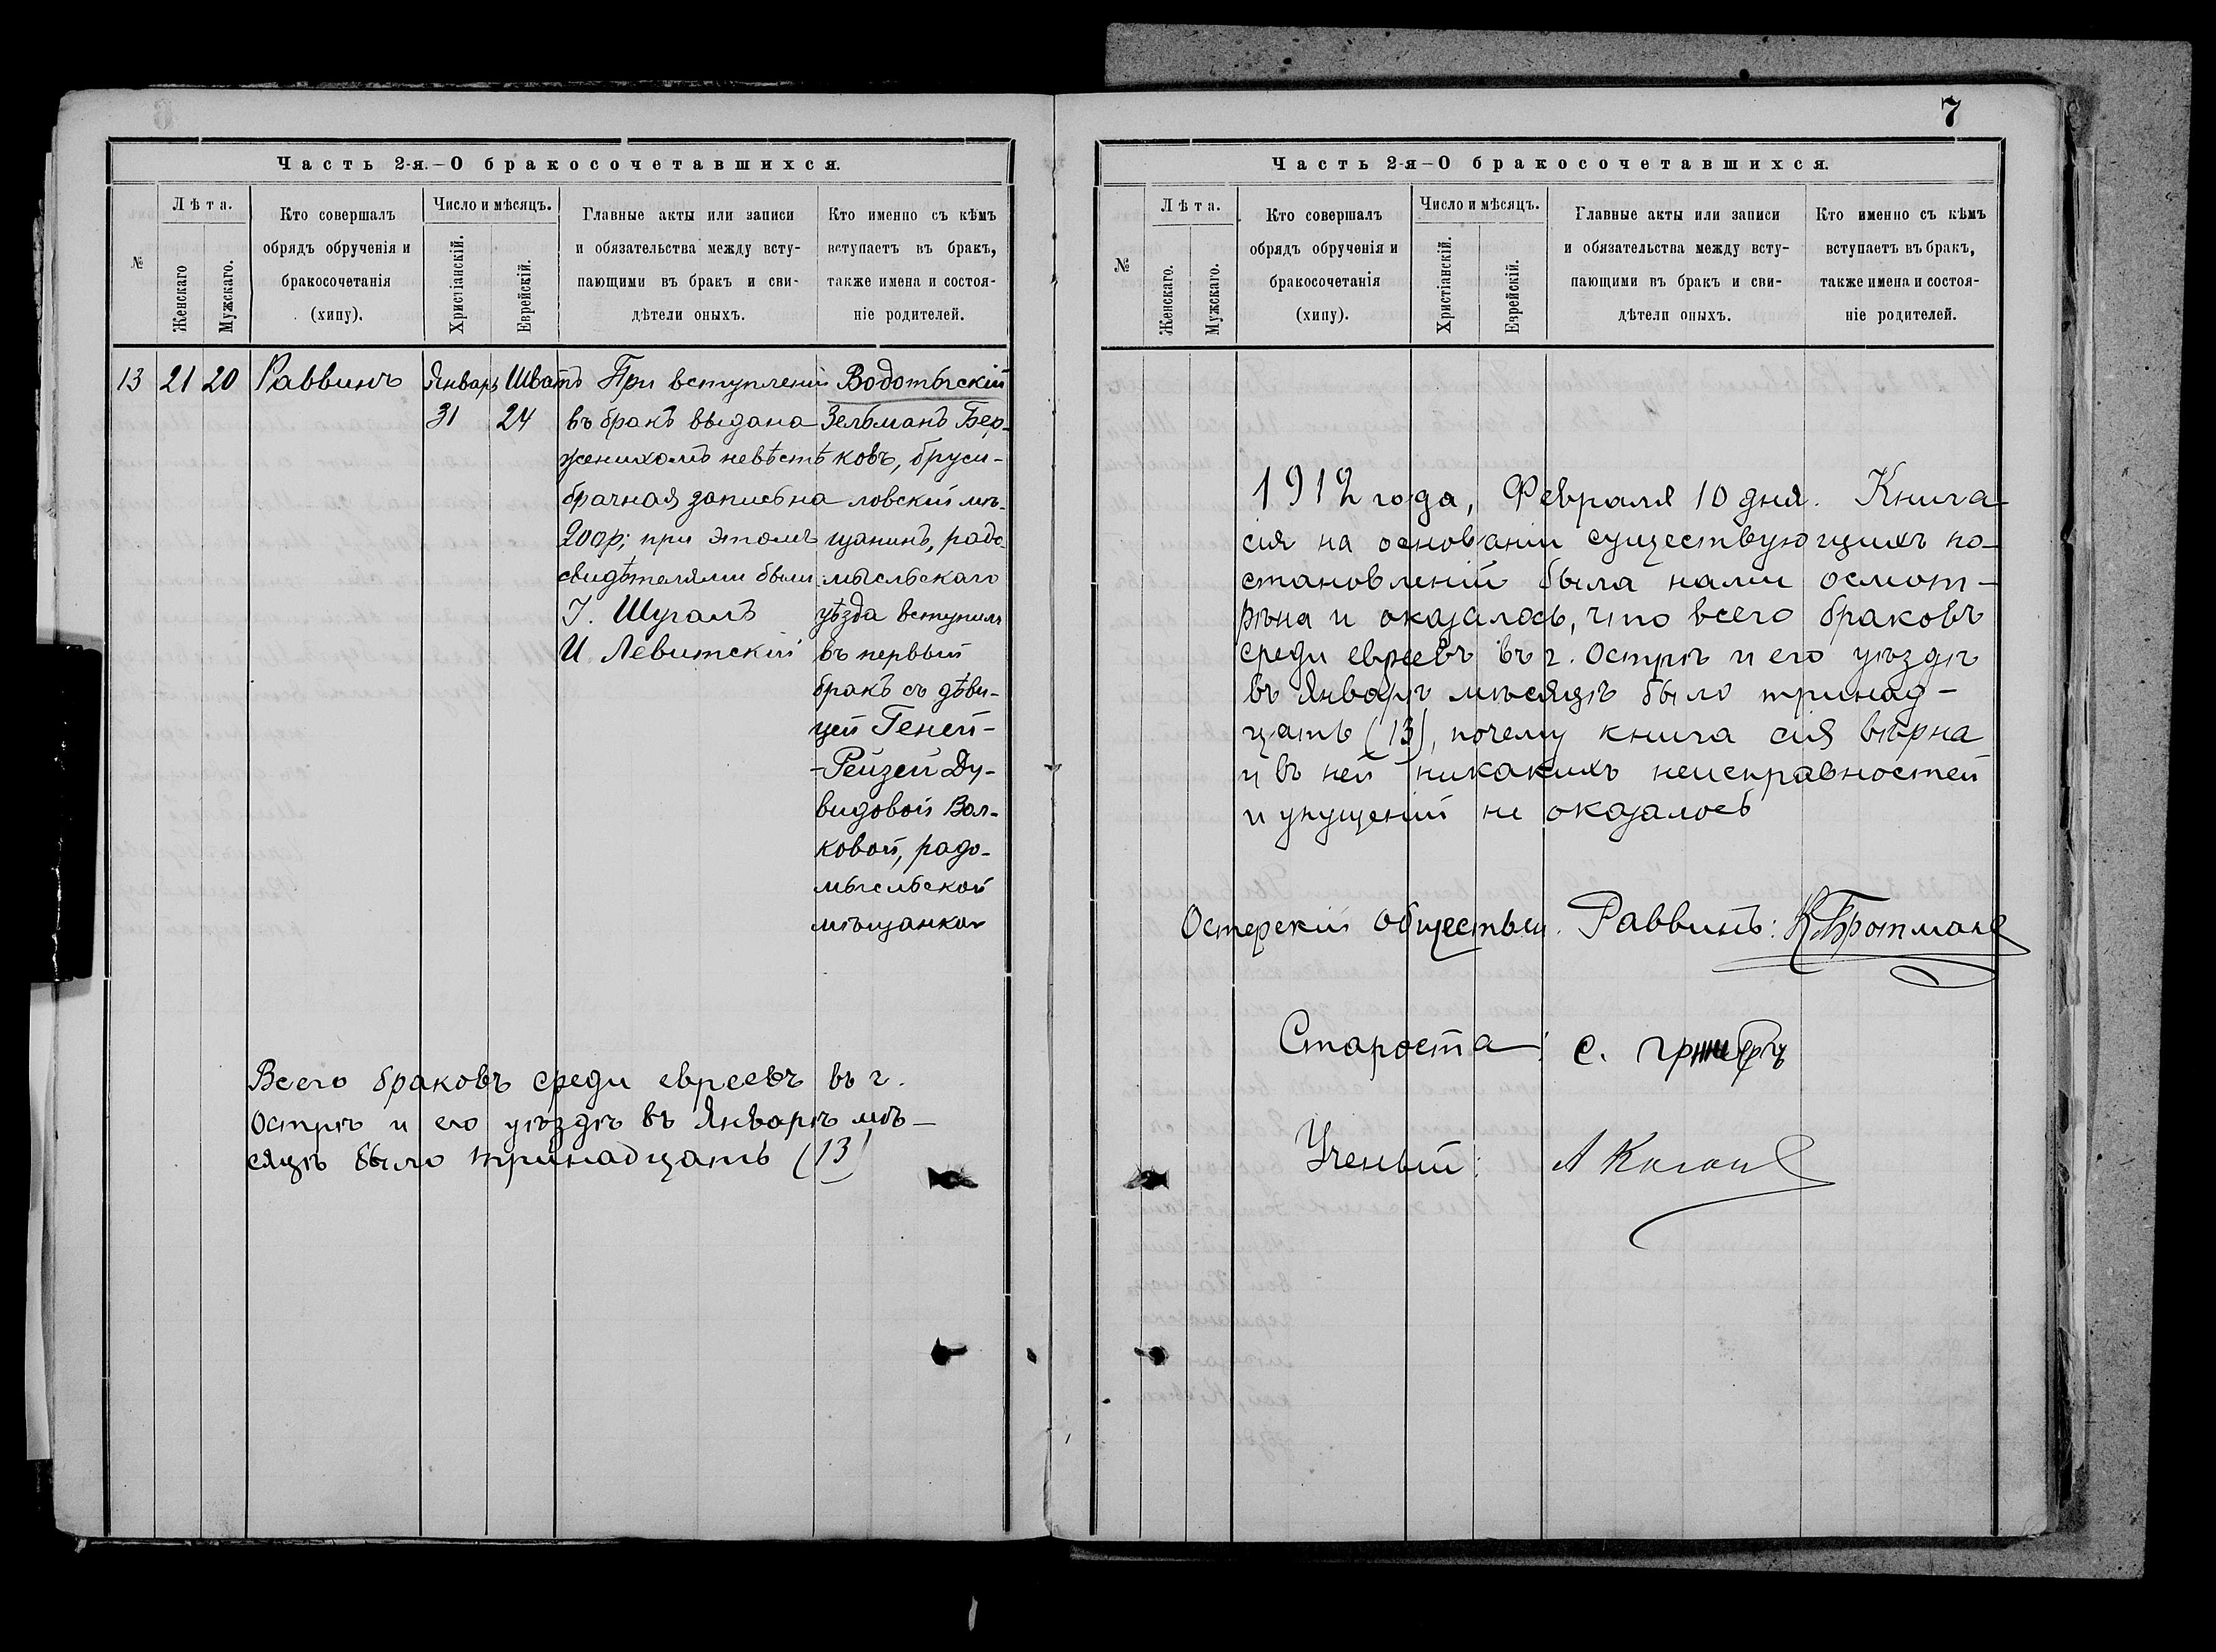 Часть 2-я.—О бракосочетавшихся.
№
Лѣта.
Женскаго
Мужскаго.
Кто совершалъ
обрядъ обрученія и
бракосочетанія
(хипу).
Число и мѣсяцъ.
Христіанскій.
Еврейскій.
Главные акты или записи
и обязательства между всту-
пающими въ бракъ и сви-
дѣтели оныхъ.
Кто именно съ кѣмъ
вступаетъ въ бракъ,
также имена и состоя-
ніе родителей.
13
21
20
Раввинъ
Январь
31
Шватъ
24
При вступленіи
въ бракъ выдана
женихомъ невѣстѣ
брачная запись на
200р; при этомъ
свидѣтелями были
І. Шугалъ
И. Левитскій
Водотыскій
Зельманъ Бер-
ковъ, бруси-
ловскій мѣ-
щанинъ, радо-
мысльскаго
уѣзда вступилъ
въ первый
бракъ съ дѣви-
цей Геней-
-Рейзей Ду-
видовой Вол-
ковой, радо-
мысльской
мѣщанкой
Всего браковъ среди евреевъ въ г.
Острѣ и его уѣздѣ въ Январѣ мѣ-
сяцѣ было тринадцать (13)
7
Часть 2-я—О бракосочетавшихся.
№
Лѣта.
Женскаго.
Мужскаго.
Кто совершалъ
обрядъ обрученія и
бракосочетанія
(хипу).
Число и мѣсяцъ.
Христіанскій.
Еврейскій.
Главные акты или записи
и обязательства между всту-
пающими въ бракъ и сви-
дѣтели оныхъ.
Кто именно съ кѣмъ
вступаетъ въ бракъ,
также имена и состоя-
ніе родителей.
1912 года, Февраля 10 дня. Книга
сія на основаніи существующихъ по-
становленій была нами осмот-
рѣна и оказалось, что всего браковъ
среди евреевъ въ г. Острѣ и его уѣздѣ
въ Январѣ мѣсяцѣ было тринад-
цать (13), почему книга сія вѣрна
и въ ней никакихъ неисправностей
и упущеній не оказалось
Остерскій обществен. Раввинъ: Бротманъ
Староста: С.
Ученый: А Коганъ